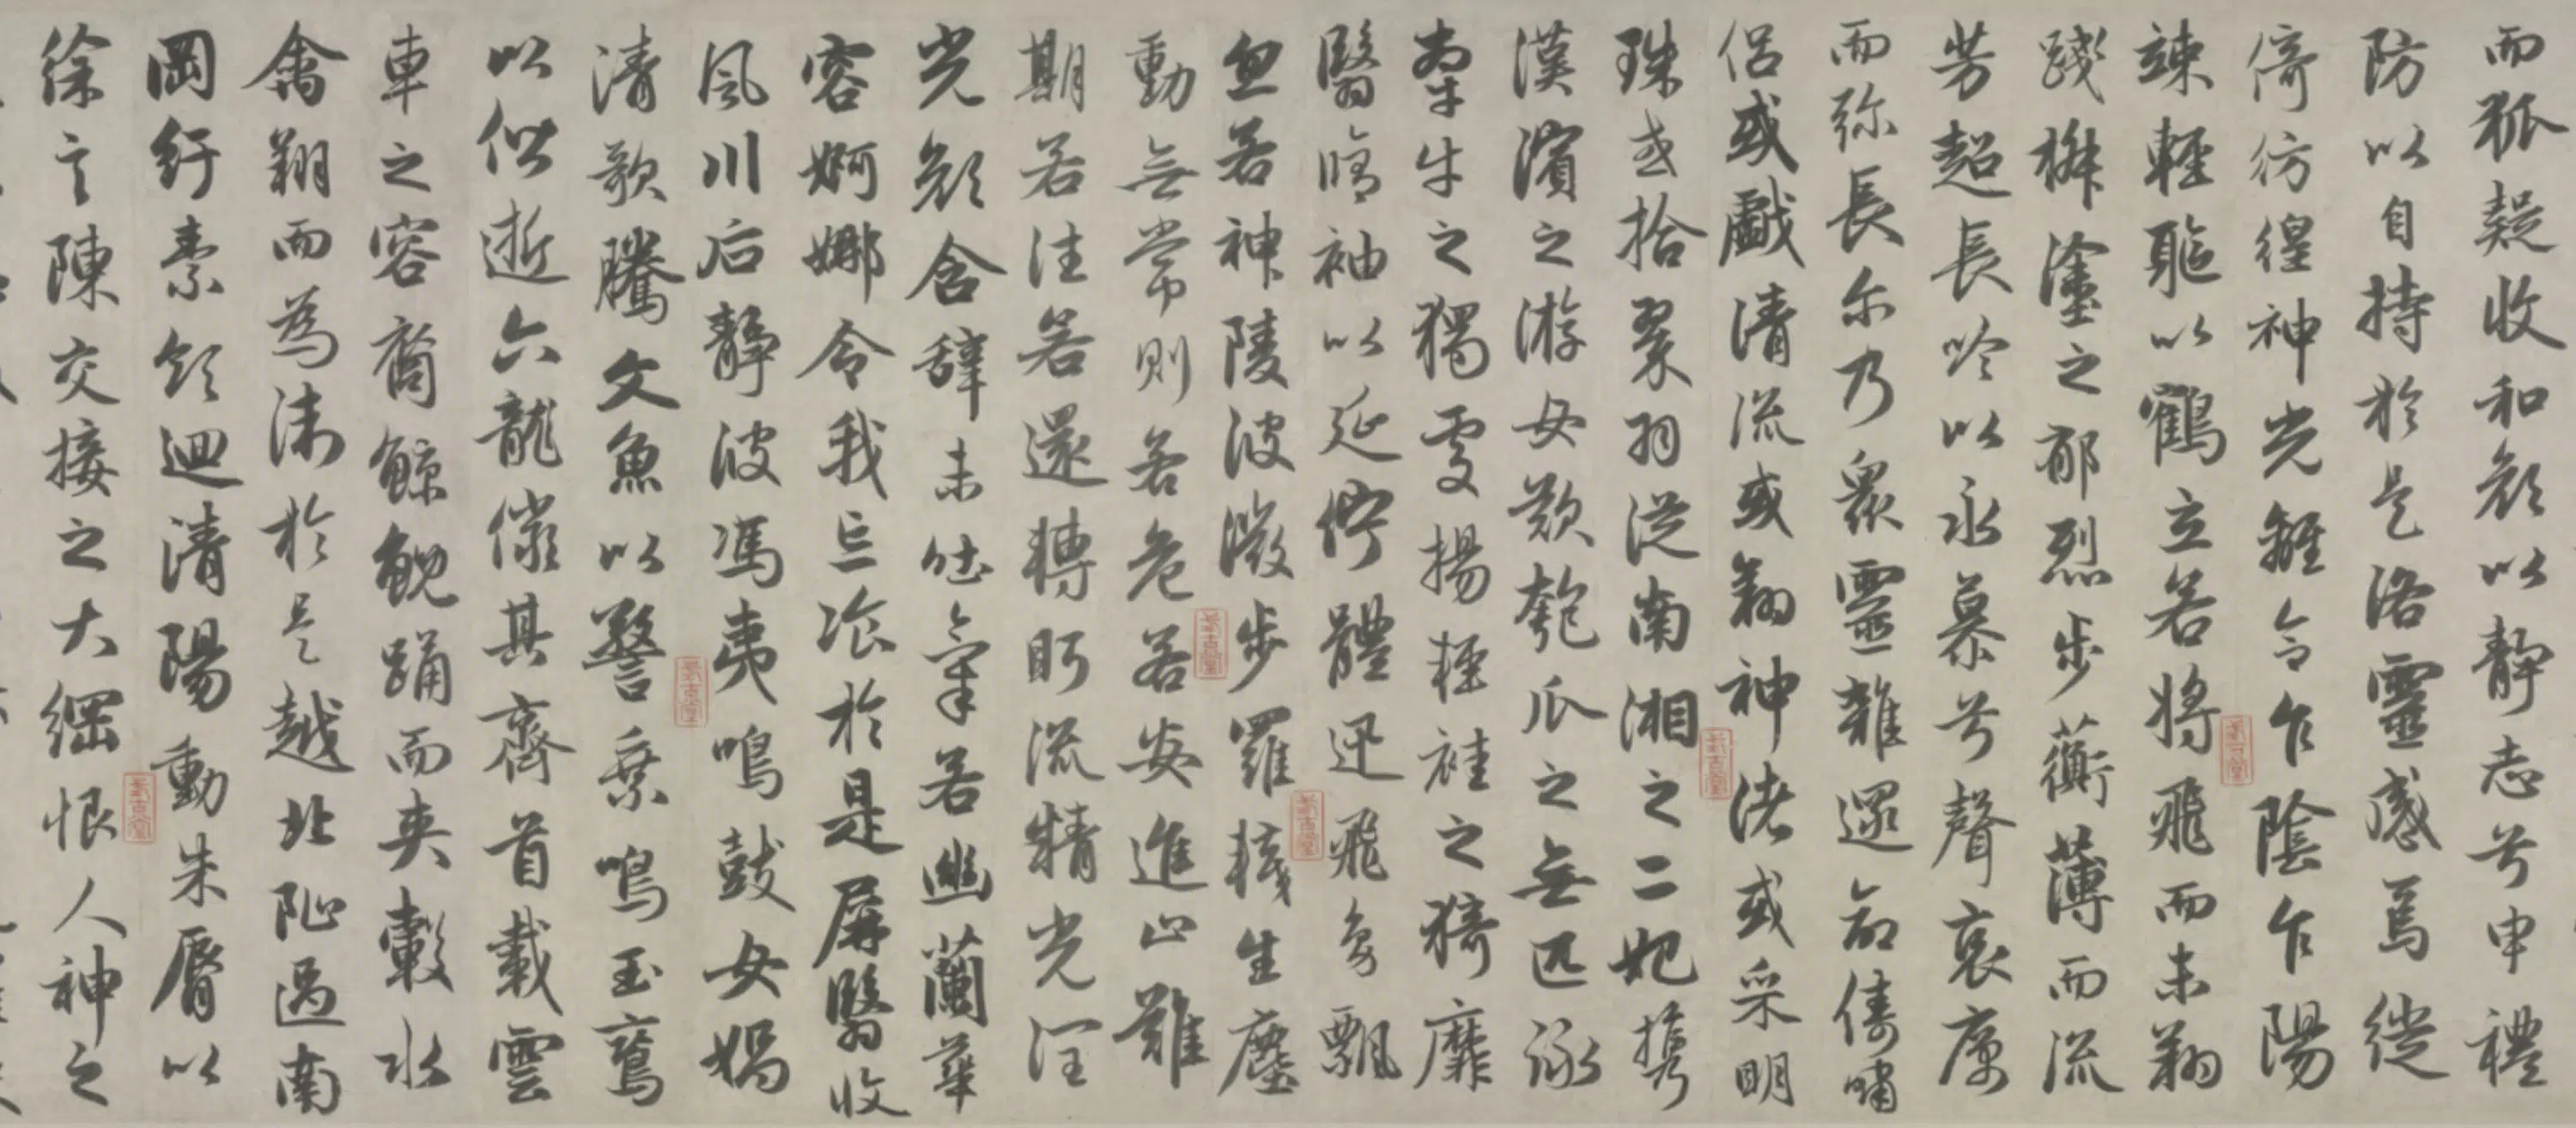 而狐疑收和顔以靜志兮申禮
防以自持於是洛靈感焉徙
倚彷徨神光離合乍陰乍陽
竦輕軀以鶴立若將飛而未翔
踐椒塗之郁烈步蘅薄而流
芳超長吟以永慕兮聲哀厲
而弥長尔乃衆靈雜遝命儔嘯
侣或戲清流或翔神渚或采明
珠或拾翠羽從南湘之二妃攜
漢濱之游女歎匏瓜之無匹詠
牽牛之獨處揚輕袿之猗靡
翳脩袖以延佇體迅飛鳧飄
忽若神陵波微步羅韈生塵
動無常則若危若安進止難
期若往若還轉眄流精光潤
光顔含辭未吐氣若幽蘭華
容婀娜令我忘飡於是屏翳收
風川后靜波馮夷鳴鼓女媧
清歌騰文魚以警乘鳴玉鸞
以偕逝六龍儼其齊首載雲
車之容裔鯨鯢踴而夾轂水
禽翔而為衛於是越北沚過南
岡紆素領迴清陽動朱脣以
徐言陳交接之大綱恨人神之